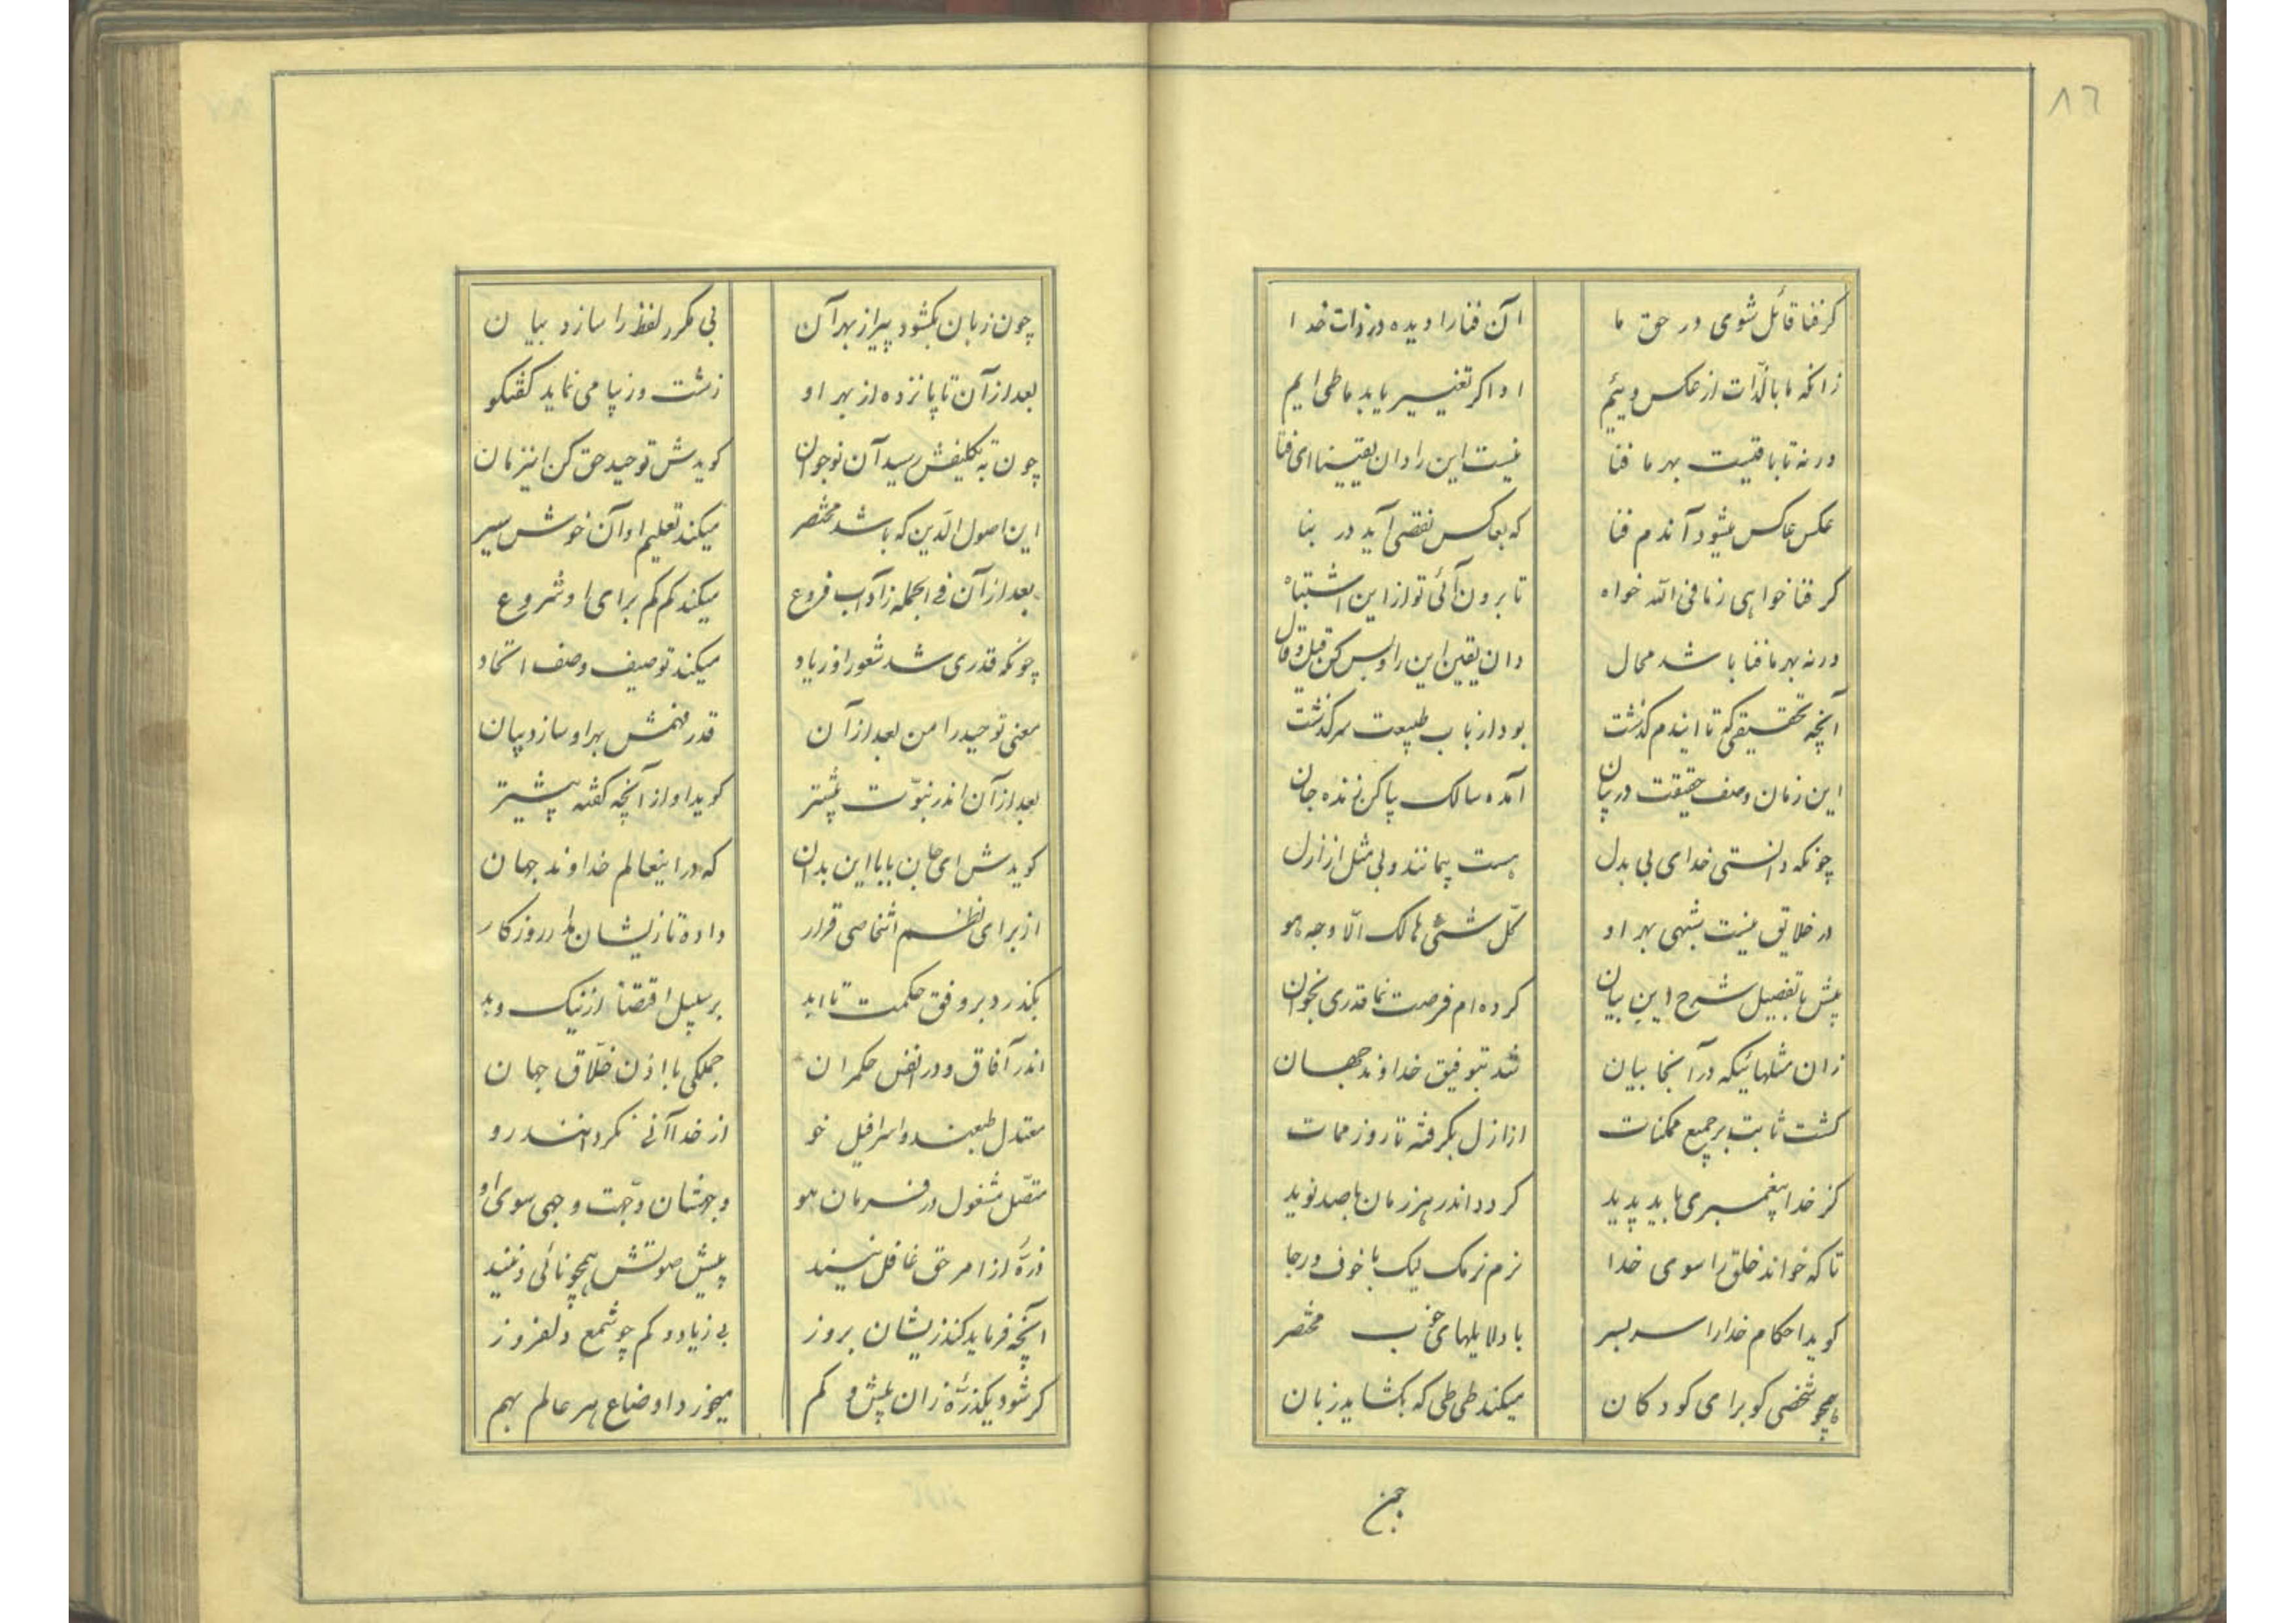 ٨٦
کر فنا قائل شوی در حق ما آن فنا را دیده در ذات خدا
زانکه ما بالذّات از عکس وییم او اکر تغییر یابد ما طی ایم
ورنه تا باقیست بهر ما فنا نیست این را دان یقینا ای فتا
عکس عاکس میشود آندم فنا که بعاکس نقصی آید در بنا
کر فنا خواهی زنا فی الله خواه تا برون آئی تو از این اشتباه
ورنه بهر ما فنا باشد محال دان یقین این را و بس کن قیل و قال
آنچه تحقیقی که تا ایندم کذشت بود از باب طبیعت سرکذشت
این زمان وصف حقیقت در بیان آمده سالک پا کن زنده جان
چونکه دانستی خدای بی بدل هست بیمانند و بی مثل از ازل
در خلایق نیست شبهی بهر او کلّ شئی هالک الّا وجه هو
پیش با تفصیل شرح این بیان کرده ام فرصت نما قدری بخوان
زان مثلهائیکه در آنجا بیان شد بتوفیق خداوند جهان
کشت ثابت بر جمیع ممکنات از ازل بکرفته تا روز ممات
کز خدا پیغمبری باید پدید کردد اندر هر زمان با صد نوید
تا که خواند خلق را سوی خدا نرم نرمک لیک با خوف و رجا
کوید احکام خدا را سر بسر با دلایلهای خوب مختصر
همچو شخصی کو برای کودکان میکند طی طی که بکشاید زبان
چون زبان بکشود پیر از بهر آن بی مکرر لفظ را سازد بیان
بعد از آن تا پانزده از بهر او زشت و زیبا می نماید کفتکو
چون به تکلیفش رسید آن نوجوان کویدش توحید حق کن اینزمان
این اصول الدّین که باشد مختصر میکند تعلیم او آن خوش سیر
بعد از آن فی الجمله ز آداب فروع میکند کم کم برای او شروع
چونکه قدری شد شعور او زیاد میکند توصیف وصف اتحاد
معنی توحید را من بعد از آن قدر فهمش بهر او سازد بیان
بعد از آن اندر نبوّت بیشتر کوید او از آنچه کفته پیشتر
کویدش ای جان بابا این بدان که در اینعالم خداوند جهان
از برای نظم اشخاصی قرار داده تا زیشان روزکار
بکذرد بر وفق حکمت تا ابد بر سبیل اقتضا از نیک و بد
اندر آفاق و در انفس حکمران جملکی با اذن خلّاق جهان
معتدل طبعند و اسرافیل خو از خدا آنی نکردانند رو
متّصل مشغول در فرمان هو وجهشان وجّهت وجهی سوی او
ذرّهٔ از امر حق غافل نیند پیش صوتش همچو نائی دمنید
آنچه فرماید کند زیشان بروز بی زیاد و کم چو شمع دلفروز
کر شود یکذرّهٔ زان بیش و کم میخورد اوضاع هر عالم بهم